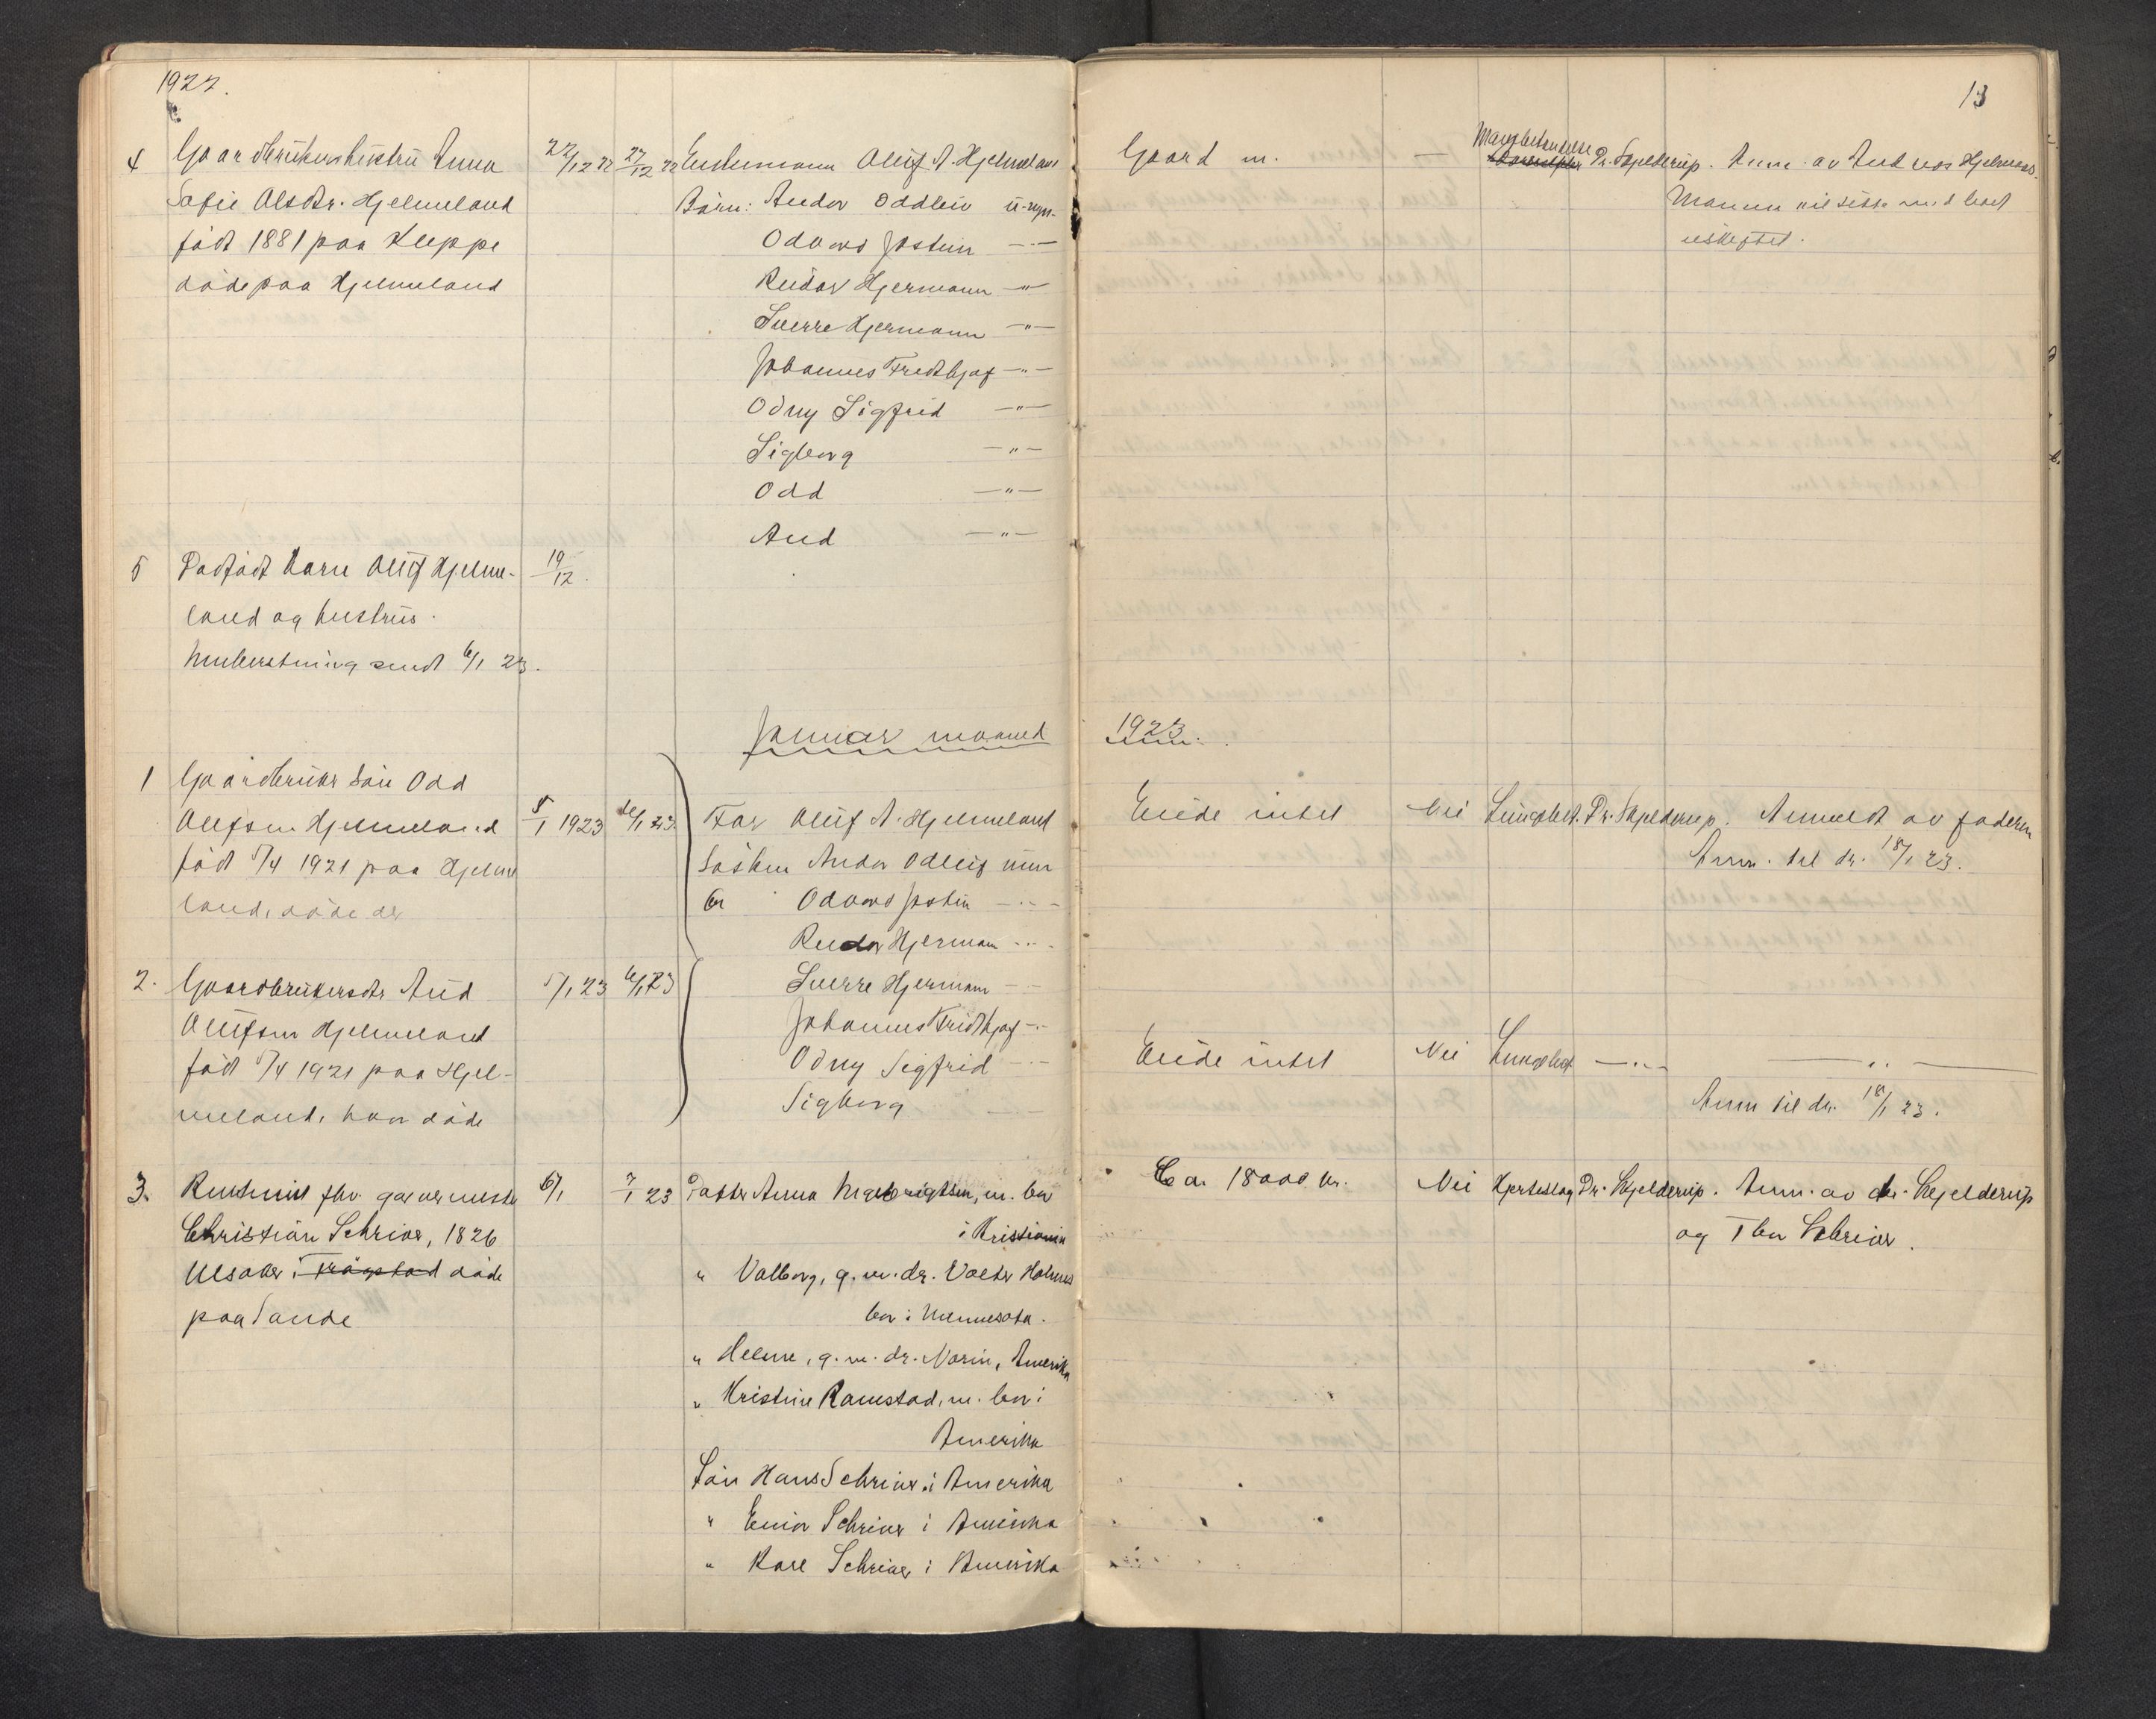 1922.
13
4 Gaardbrukerhustru Anna 22/12 22 27/12 22 Enkemann Oluf A. Hjelmeland
Sofie Olsdtr. Hjelmeland Børn: Andor Oddleiv u. myn.
født 1881 paa Kleppe Odvard Jostein —"—
døde paa Hjelmeland Reidar Hjermann —"—
Sverre Hjermann —"—
Johannes Fredthjof —"—
Odny Sigfrid —"—
Sigborg —"—
Odd —"—
Aud —"—
Gaard m. — Dr. Skjelderup. Anm. av Hjelmel.
Mannen vil sitte med boet
uskiftet.
5 Dødfødt barn Oluf Hjelme- 19/12.
land og hustru.
Innberetning sendt 6/1 23.
Januar maaned 1923.
1 Gaardbruker søn Odd
Olufsen Hjelmeland 5/1 1923 6/1 23. Far Oluf A. Hjelmeland
født 7/4 1921 paa Hjelme Søsken Andor Odleif mm
land, døde der Odvard Jostein —"—
Reidar Hjerman —"—
Eiede intet Nei Lungebet. Dr. Skjelderup. Anmeldt av faderen
Anm. til dr. 18/1 23.
2. Gaardbrukersdtr Aud 5/1 23 6/1 23 Sverre Hjerman —"—
Olufsen Hjelmeland Johannes Fridthjof —"—
født 7/4 1921 paa Hjel- Odny Sigfrid —"—
meland, hvor døde Sigborg
Eiede intet Nei Lungebet —"— —"—
Anm til dr. 18/1 23.
3. Rentenist fhv. garvermester 6/1 7/1 23 Datter Anna Ingebrigtsen, m. bor
Christian Schriver, 1826 i Kristiania
Ulsaker i Trøgstad døde " Valborg, g. m. dr. Valter Holmes
paa Sande bor i Minnesota.
" Helene, g. m. dr. Norin, Amerika
" Kristine Ramstad, m. bor i
Amerika
Søn Hans Schriver i Amerika
" Einar Schriver i Amerika
" Karl Schriver i Amerika
Ca. 18000 kr. Nei Hjerteslag Dr. Skjelderup. Anm. av dr. Skjelderup
og Schriver.